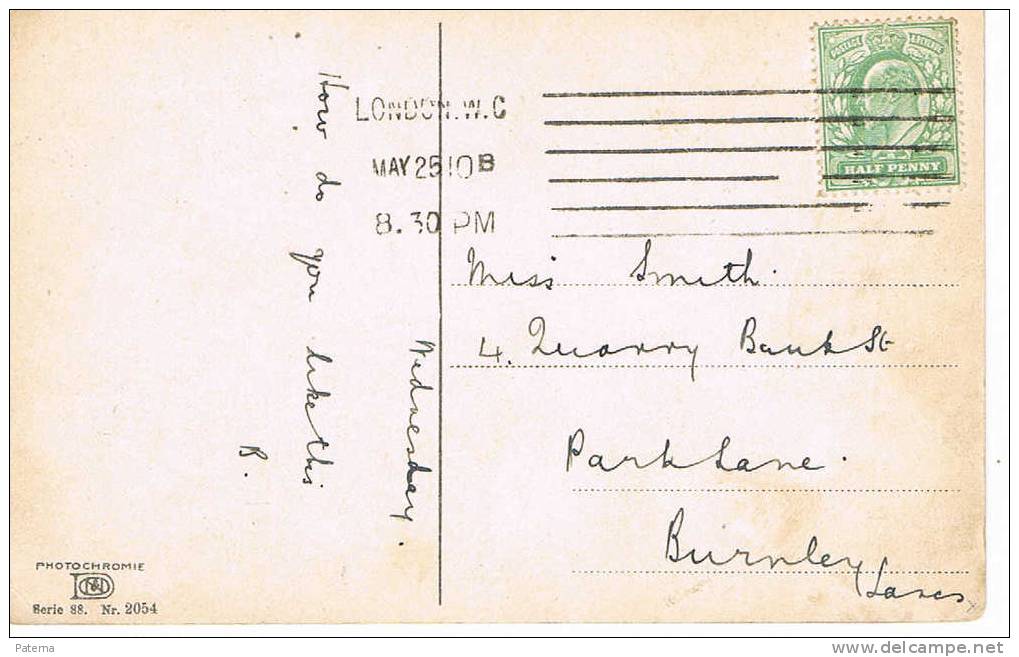 POSTAGE & REVENUE
HALF PENNY
LONDON.W.C
MAY 25 10 B
8.30 PM
Wednesday.
How do you like this
R.
Miss Smith.
4. Quarry Bank St
Park Lane.
Burnley
Lancs
PHOTOCHROMIE
Serie 88. Nr. 2054
Paterna
www.delcampe.net